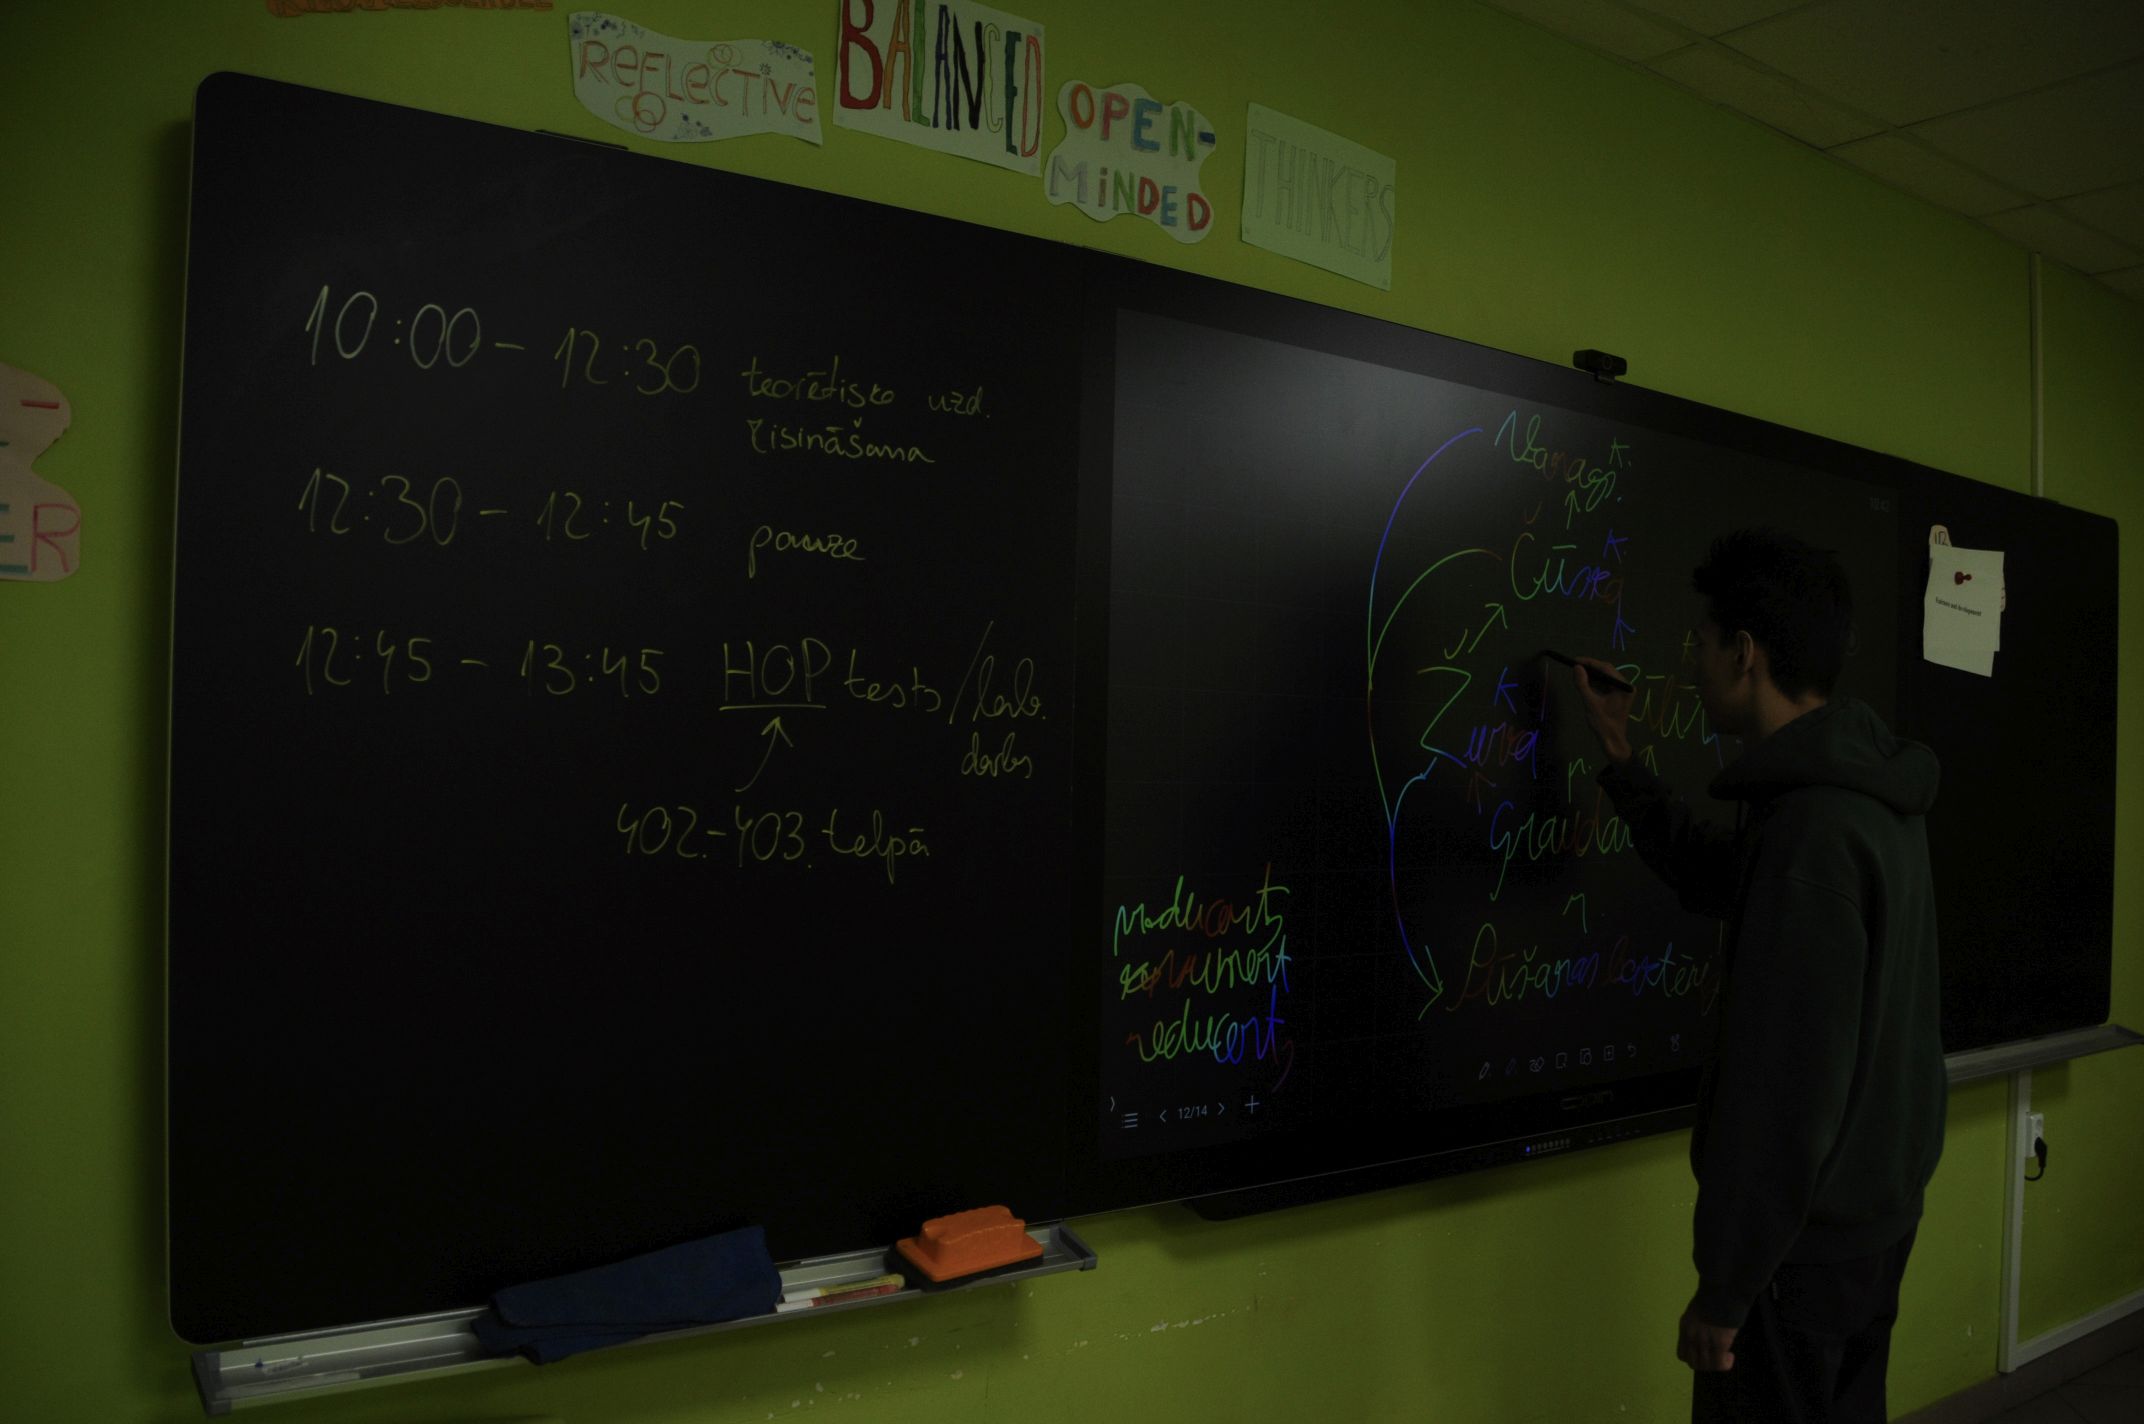 REFLECTIVE
BALANCED
OPEN-
MINDED
THINKERS
ER
10:00 - 12:30 teorētisko uzd.
risināšana
12:30 - 12:45 pauze
12:45 - 13:45 HOP tests / lab.
darbs
402.-403. telpā
Vanags
k.
Čūska
k.
Žurva
k
p.
Graudar
r.
Pūšanas baktērij
producents
konsument
reducents
12/14
10:42